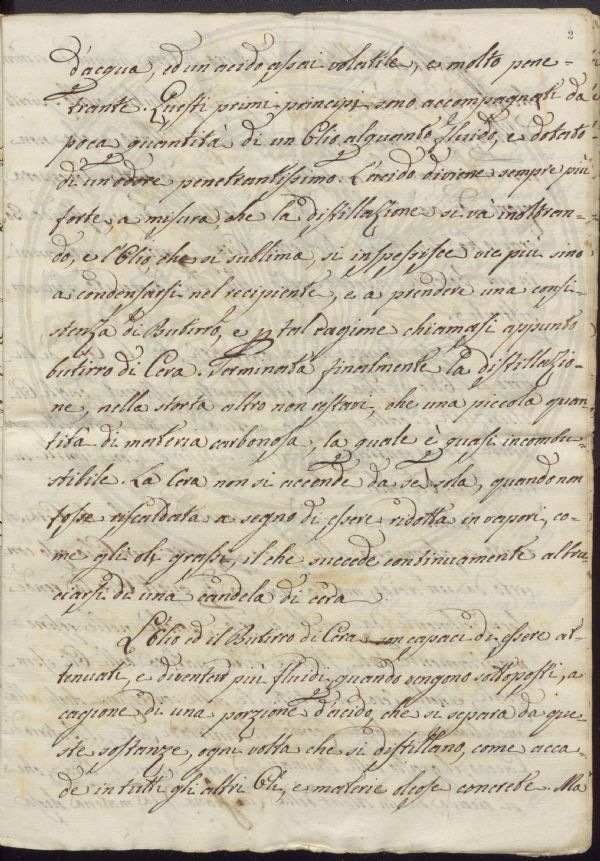 2
d'acqua, ed un acido assai volatile, e molto pene=
trante. Questi primi principj sono accompagnati da
poca quantità di un Olio alquanto fluido, e dotato
di un odore penetrantissimo. L'acido diviene sempre più
forte, a misura, che la distillazione si và inoltran=
do, e l'Olio, che si sublima, si inspessisce vie più sino
a condensarsi nel recipiente, e a prendere una consi=
stenza di Butirro, e p tal ragione chiamasi appunto
butirro di Cera. Terminata finalmente la distillazio=
ne, nella storta altro non restavi, che una piccola quan
tità di materia carbonosa, la quale è quasi incombu=
stibile. La Cera non si accende da sè sola, quando non
fosse riscaldata a segno di essere ridotta in vapori, co=
me gli olj grassi, il che succede continuamente al bru=
ciarsi di una candela di cera.
L'Olio ed il Butirro di Cera son capaci di essere at=
tenuati, e diventar più fluidi, quando vengono sottoposti, a
cagione di una porzione d'acido, che si separa da que=
ste sostanze, ogni volta che si distillano, come acca=
de in tutti gli altri Olj, e materie oleose concrete. Ma